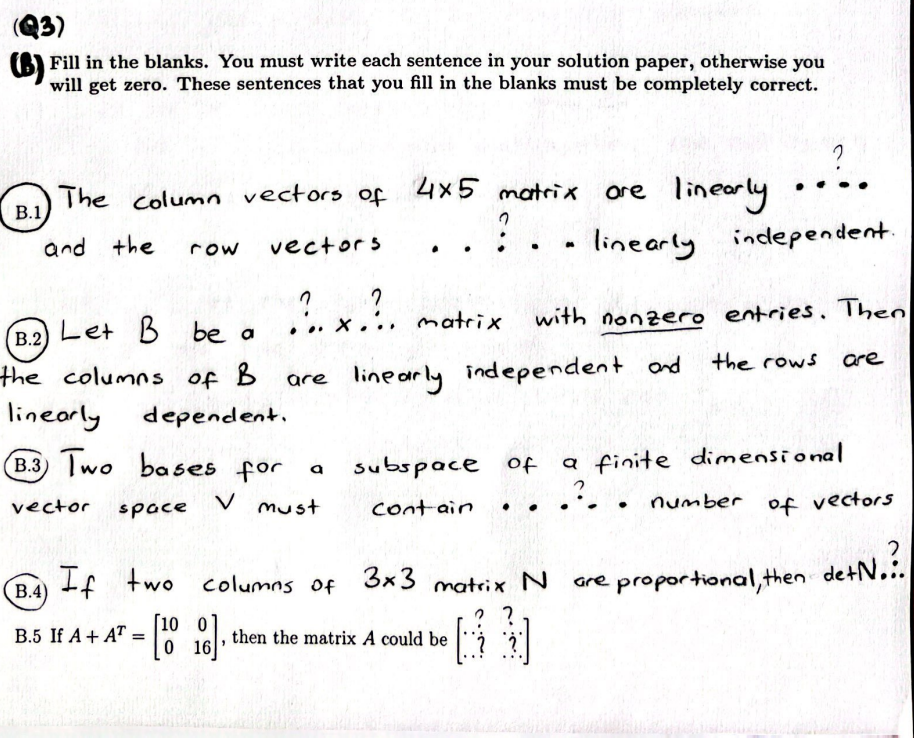 (Q3)
(B) Fill in the blanks. You must write each sentence in your solution paper, otherwise you
will get zero. These sentences that you fill in the blanks must be completely correct.
B.1 The column vectors of 4x5 matrix are linearly ..?..
and the row vectors ..?.. linearly independent.
B.2 Let B be a .?.. x .?.. matrix with nonzero entries. Then
the columns of B are linearly independent and the rows are
linearly dependent.
B.3 Two bases for a subspace of a finite dimensional
vector space V must contain ..?.. number of vectors
B.4 If two columns of 3x3 matrix N are proportional, then detN.?..
B.5 If A + Aᵀ = [10 0; 0 16], then the matrix A could be [? ?; ? ?]